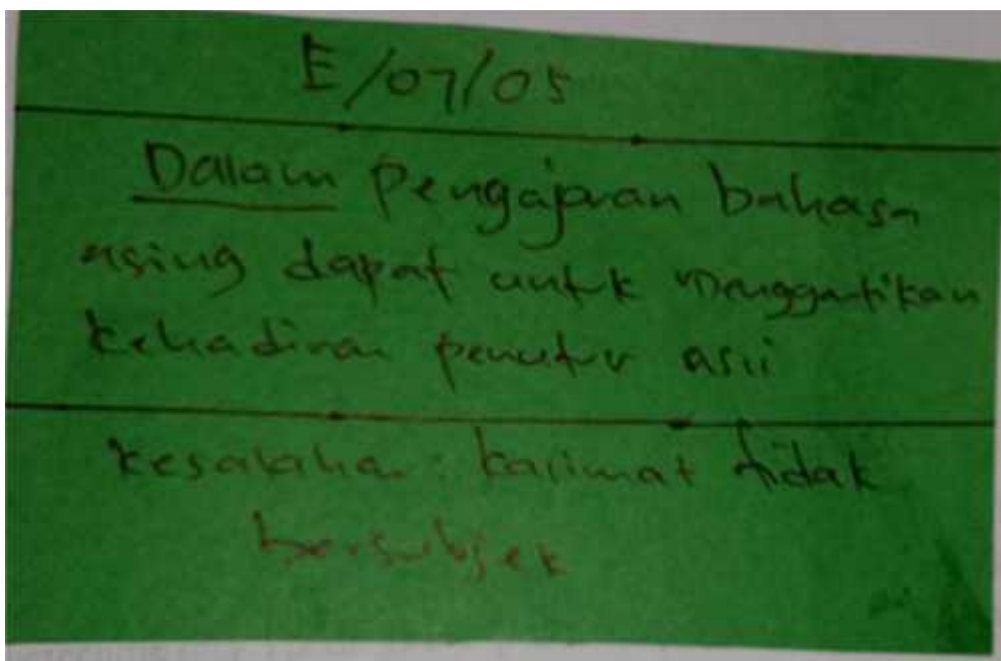 E/07/05
Dalam pengajaran bahasa
asing dapat untuk menggantikan
kehadiran penutur asli
kesalahan : kalimat tidak
bersubjek